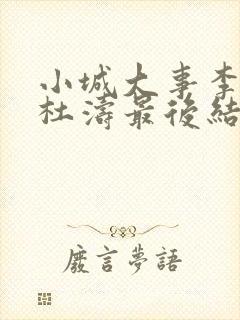 小城大事李
杜濤最後結
廢言夢語